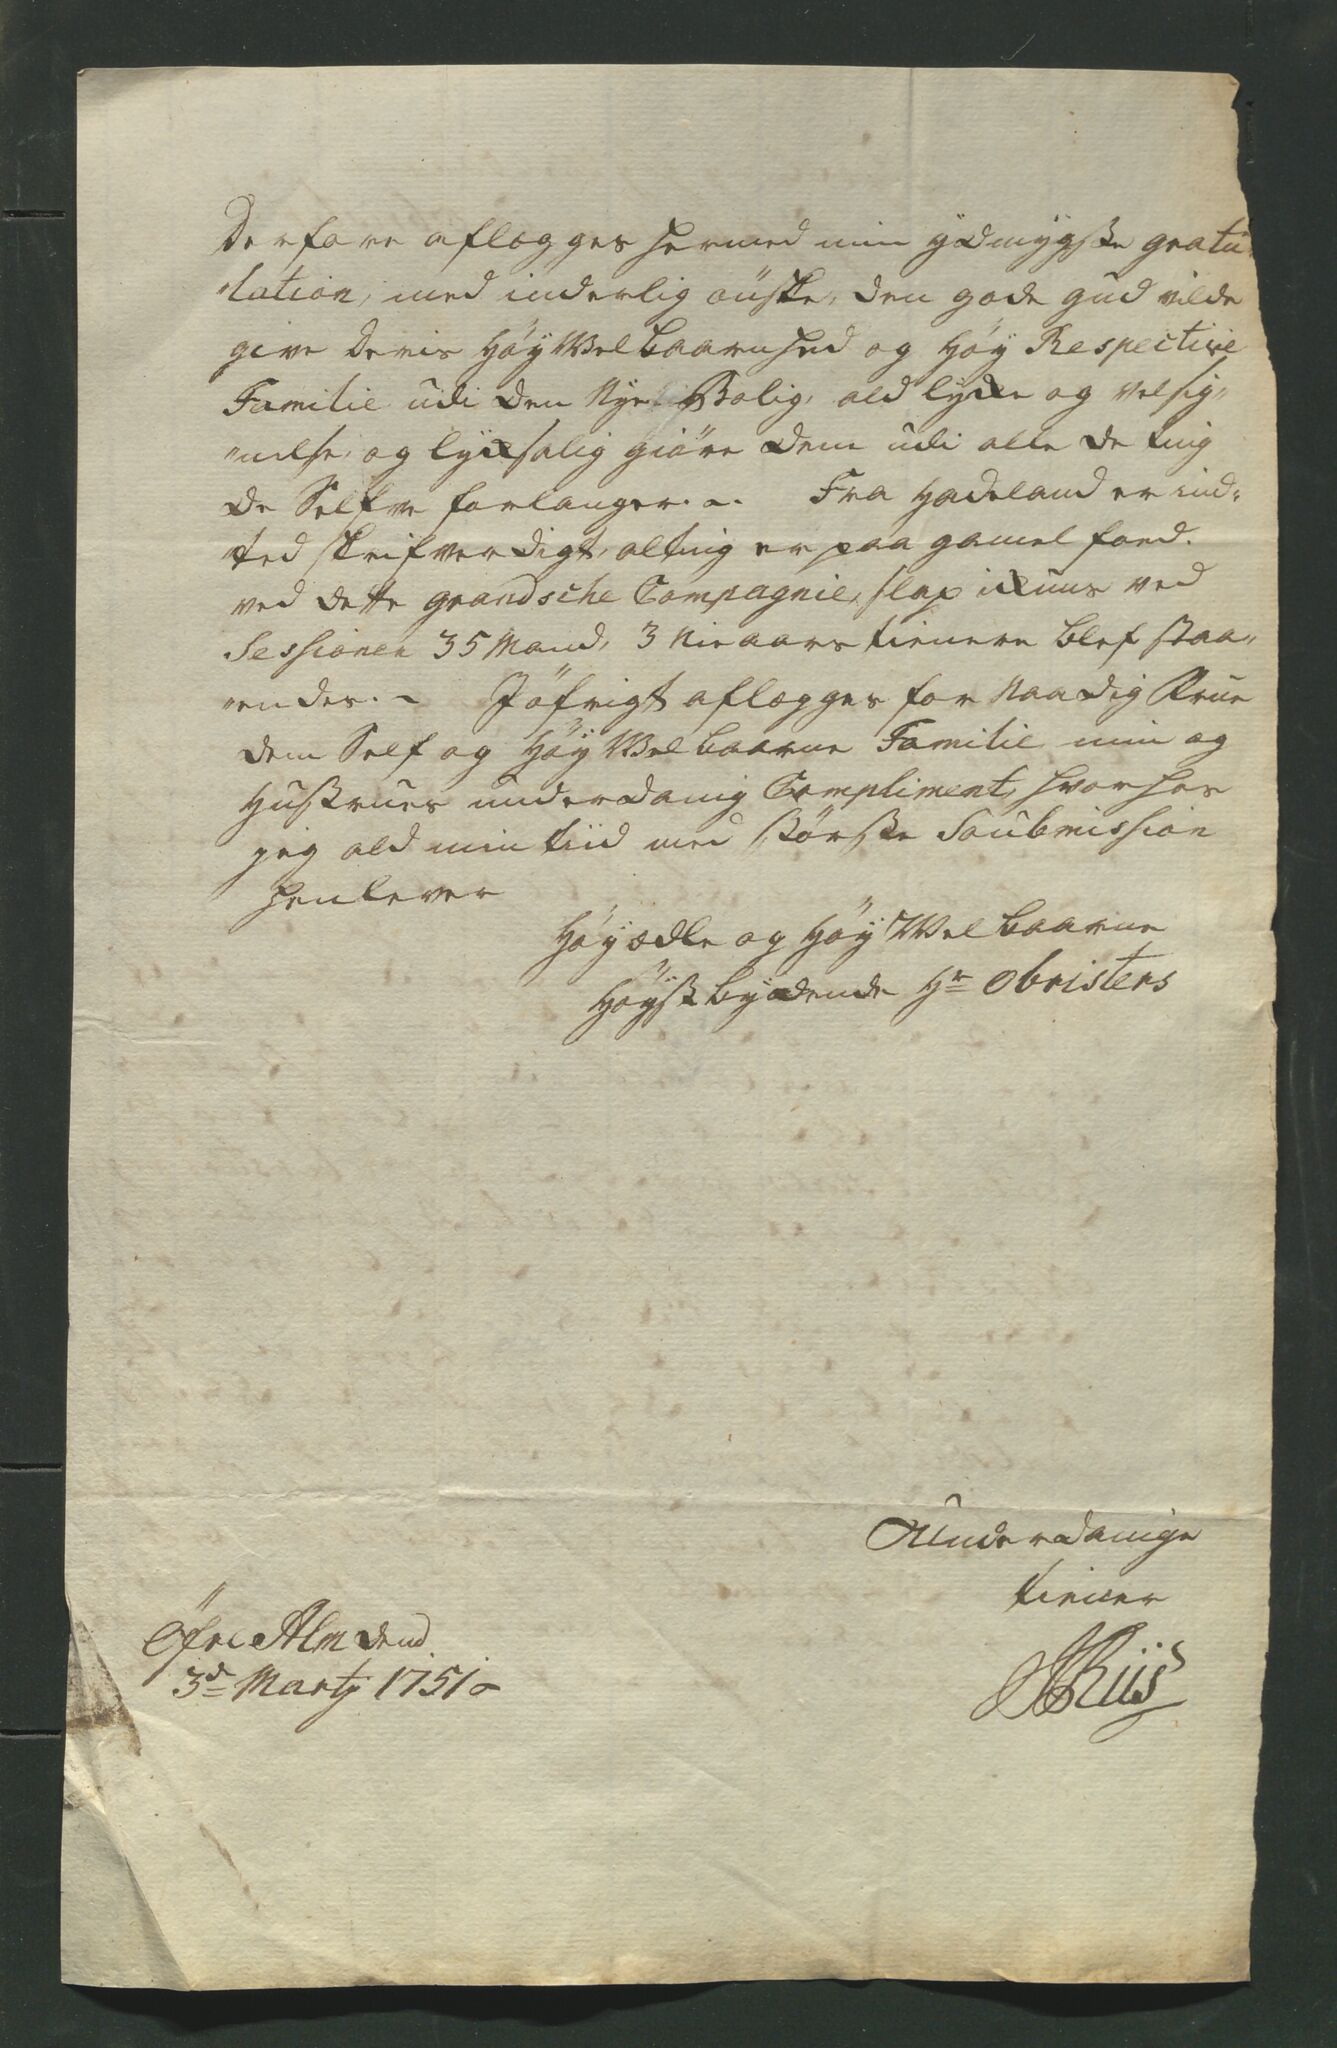 Derfore aflægges hermed min ydmygste gratu„
„lation, med inderlig önske, den gode gud vilde
give Deris HöyWelbaarenhed og höy Respective
Familie udi den Nye Bolig, ald lycke og velsig„
„nelse, og lycksalig giöre dem udi alle de ting
de Selfve forlanger. Fra Hadeland er ind„
„ted skrifverdigt, alting er paa gamel foed.
ved dette grandsche Compagnie, slap ickuns ved
Sessionen 35 Mand, 3 Nie aars tienere blef staa„
„endes. Jöfrigt aflægges for Naadig Frue
dem Self og HöyWelbaarne Familie min og
Hustrues underdanig Compliment, hvorhos
jeg ald min tiid med störste Soubmission
henlever
Höyædle og HöyWelbaarne
Höystbydende Hr Obristers
Underdanige
tiener
Öfre Alm dend
3de Martij 1751
Riis